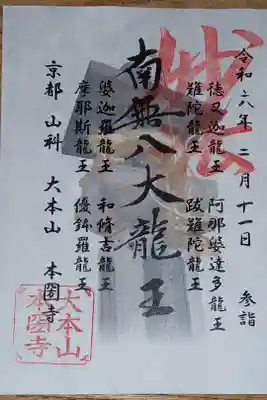 妙法
令和六年二月十一日 参詣
徳叉迦龍王 阿那婆達多龍王
難陀龍王 跋難陀龍王
南無八大龍王
娑迦羅龍王 和脩吉龍王
摩耶斯龍王 優鉢羅龍王
京都 山科 大本山 本圀寺
大本山
本圀寺